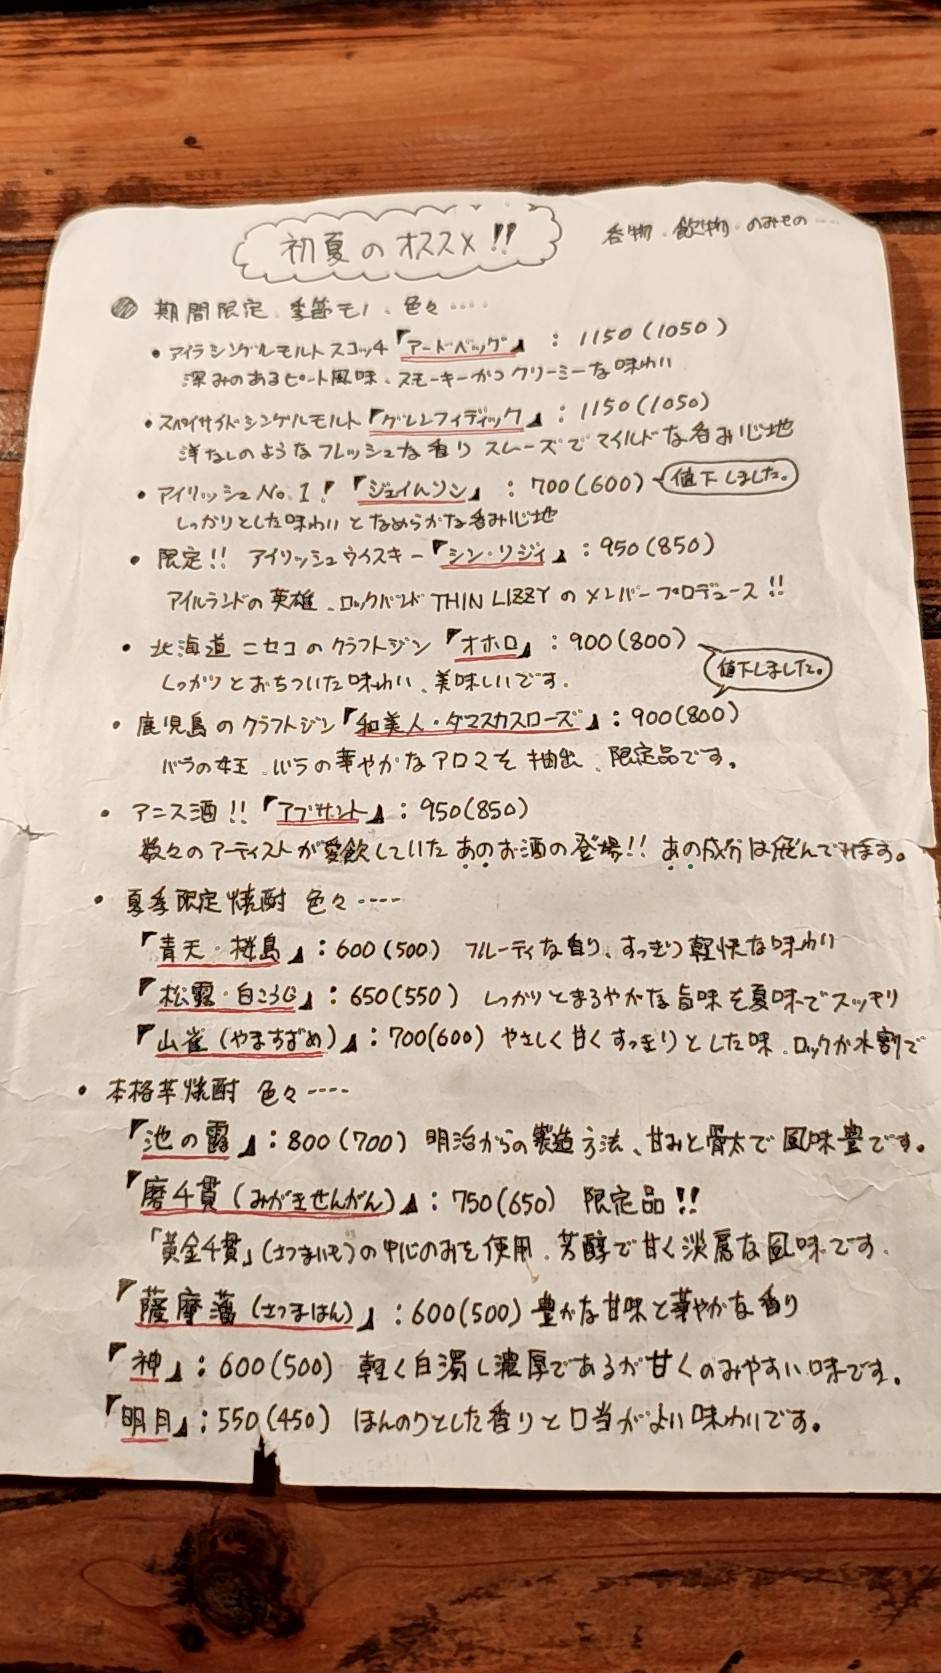 初夏のオススメ!!
呑物・飲物・のみもの……
期間限定、季節モノ、色々‥‥
・アイラシングルモルトスコッチ『アードベッグ』：1150(1050)
深みのあるピート風味、スモーキーかつクリーミーな味わい
・スペイサイドシングルモルト『グレンフィディック』：1150(1050)
洋なしのようなフレッシュな香り スムーズでマイルドな呑み心地
・アイリッシュNo.1!『ジェイムソン』：700(600) 値下しました。
しっかりとした味わいとなめらかな呑み心地
・限定!! アイリッシュウイスキー『シン・リジィ』：950(850)
アイルランドの英雄、ロックバンドTHIN LIZZYのメンバープロデュース!!
・北海道ニセコのクラフトジン『オホロ』：900(800)
値下しました。
しっかりとおちついた味わい、美味しいです。
・鹿児島のクラフトジン『和美人・ダマスカスローズ』：900(800)
バラの女王、バラの華やかなアロマを抽出、限定品です。
・アニス酒!!『アブサント』：950(850)
数々のアーティストが愛飲していたあのお酒の登場!! あの成分は飛んでます。
・夏季限定焼酎 色々‥‥
『青天・桜島』：600(500) フルーティな香り、すっきり軽快な味わい
『松露・白ころじ』：650(550) しっかりとまろやかな旨味を夏味でスッキリ
『山雀(やますずめ)』：700(600) やさしく甘くすっきりとした味、ロックか水割で
・本格芋焼酎 色々‥‥
『池の露』：800(700) 明治からの製造方法、甘みと骨太で風味豊です。
『磨千貫(みがきせんがん)』：750(650) 限定品!!
「黄金千貫」(さつまいも)の中心のみを使用、芳醇で甘く淡麗な風味です。
『薩摩藩(さつまはん)』：600(500) 豊かな甘味と華やかな香り
『神』：600(500) 軽く白濁し濃厚であるが甘くのみやすい味です。
『明月』：550(450) ほんのりとした香りと口当がよい味わいです。